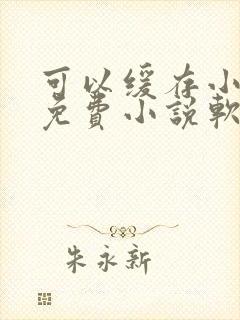 可以缓存小
免費小說軟
朱永新